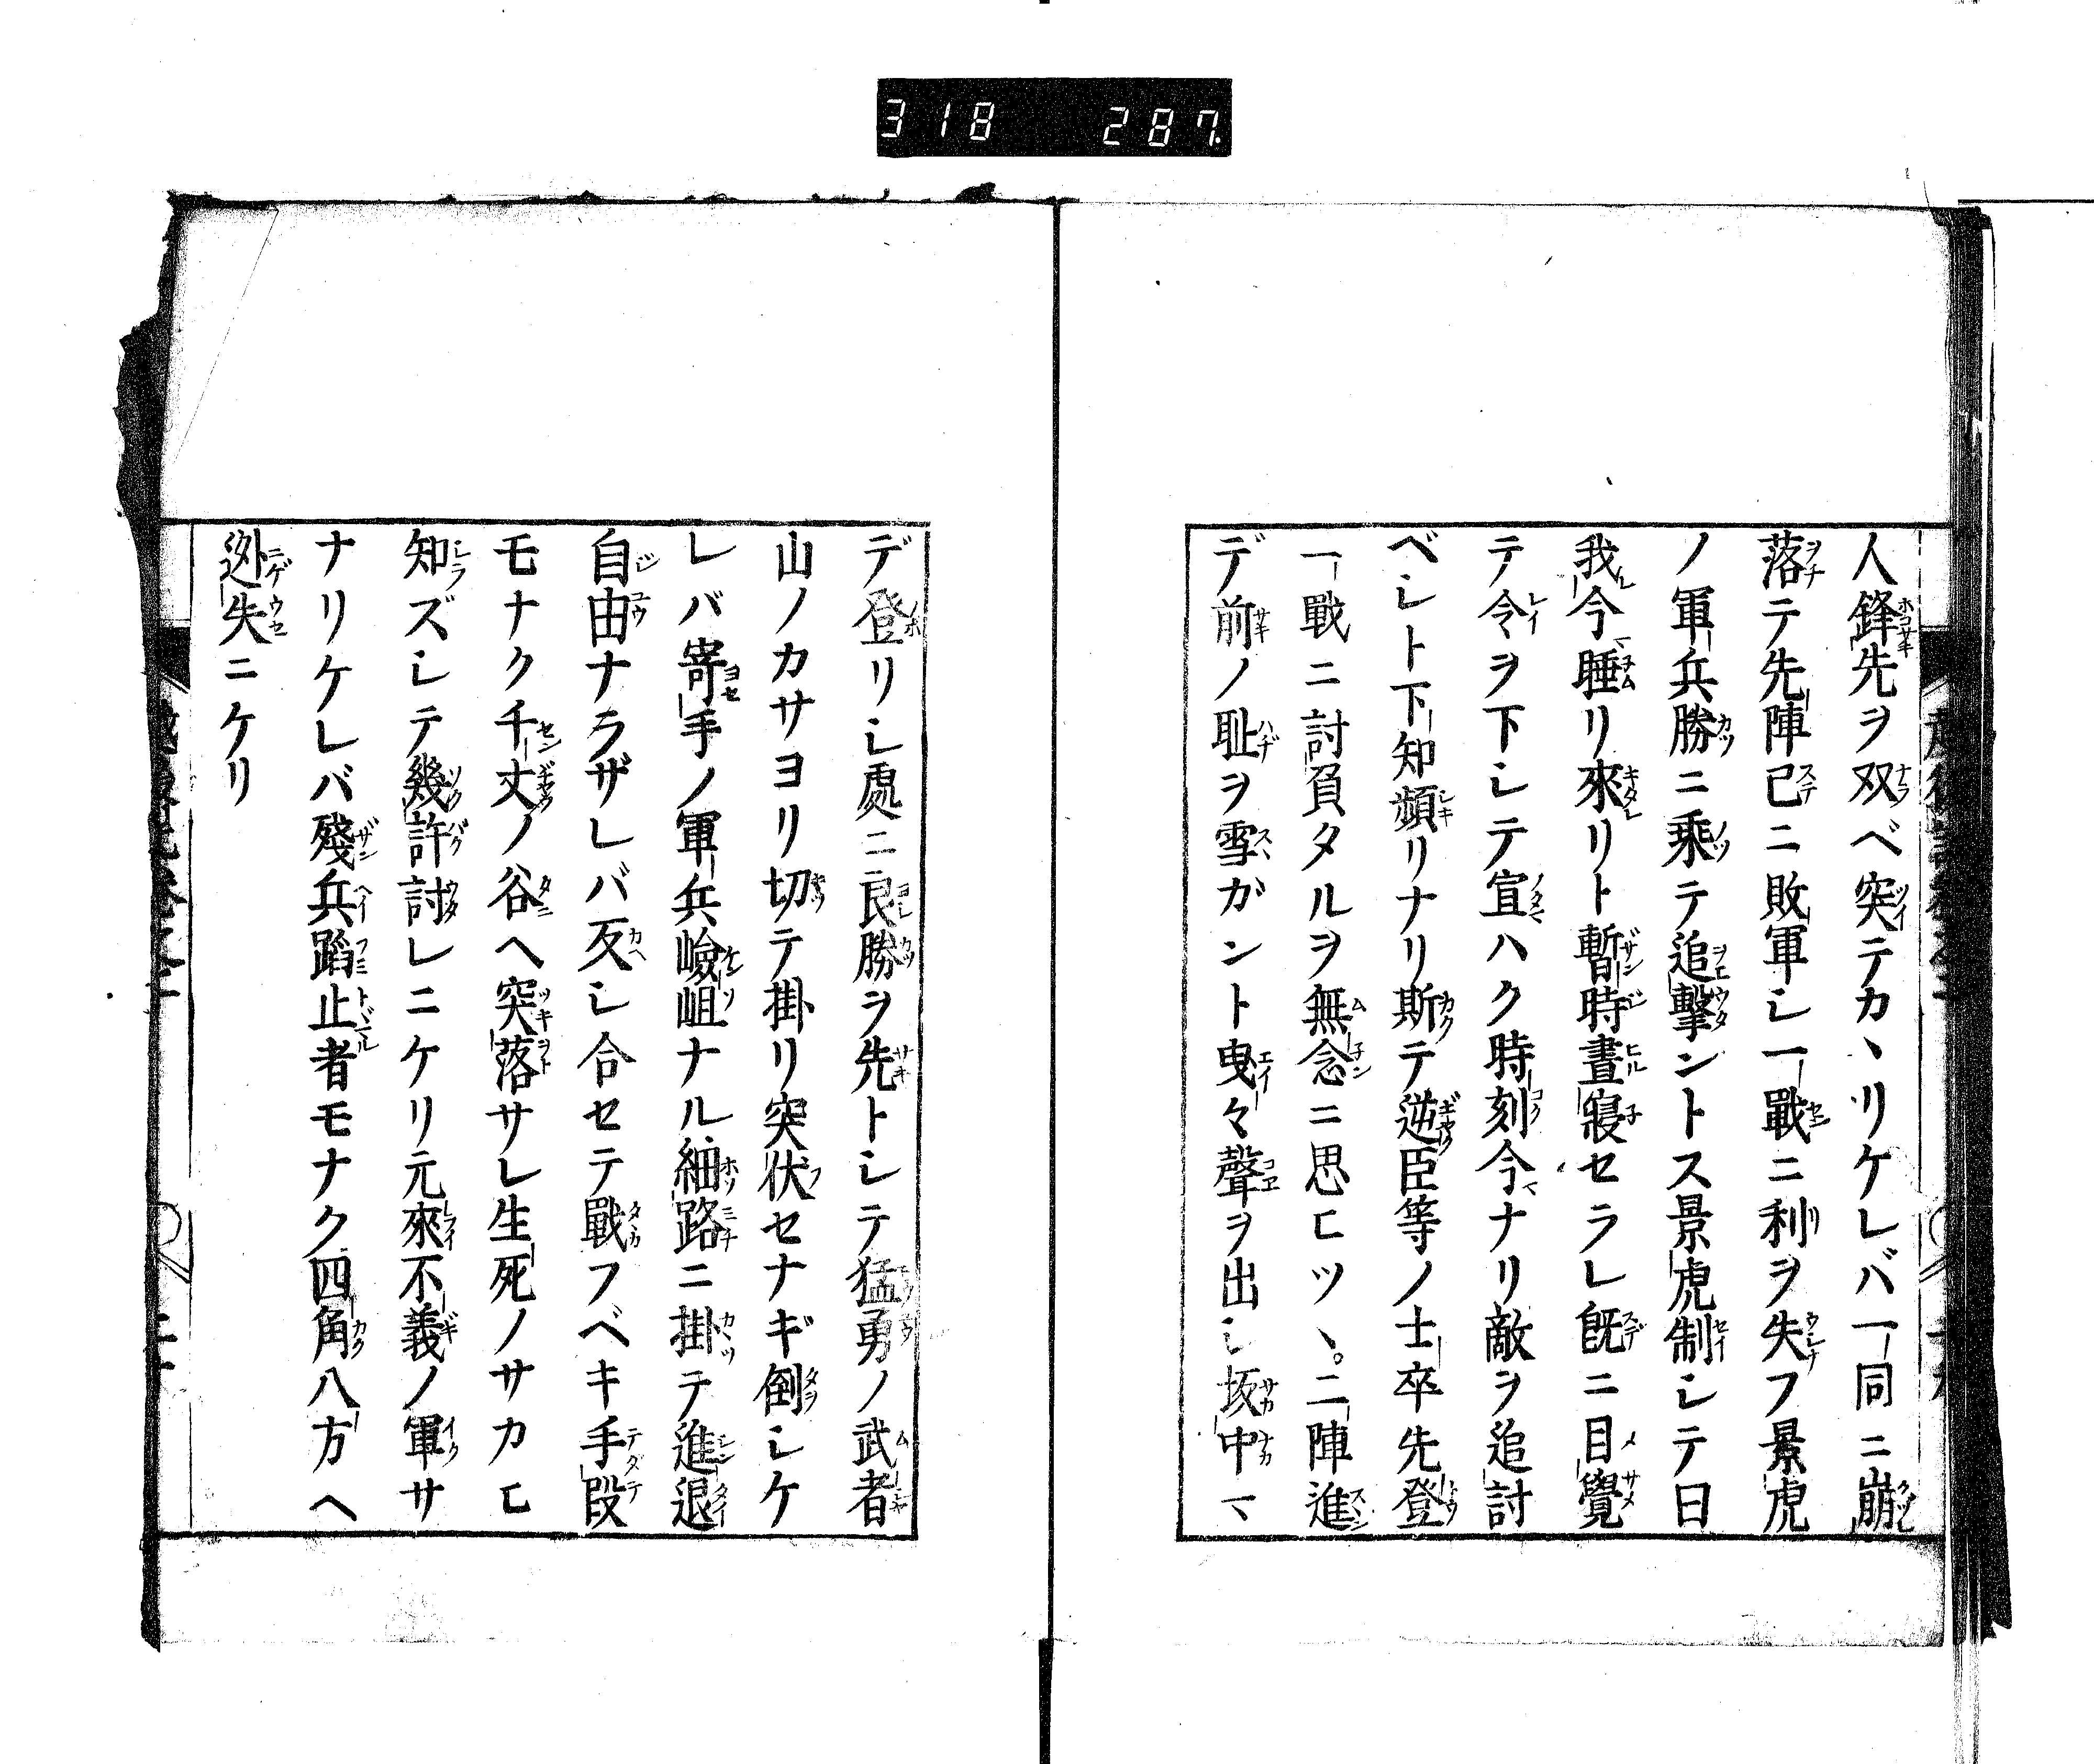 318 287
人鋒先ヲ双ベ突テカヽリケレバ一同ニ崩
落テ先陣已ニ敗軍シ一戰ニ利ヲ失フ景虎
ノ軍兵勝ニ乘テ追擊ントス景虎制シテ曰
我今睡リ來リト暫時晝寢セラレ旣ニ目覺
テ令ヲ下シテ宣ハク時刻今ナリ敵ヲ追討
ベシト下知頻リナリ斯テ逆臣等ノ士卒先登
一戰ニ討負タルヲ無念ニ思ヒツヽ。二陣進
デ前ノ耻ヲ雪ガント曳々聲ヲ出シ坂中マ
デ登リシ處ニ良勝ヲ先トシテ猛勇ノ武者
山ノカサヨリ切テ掛リ突伏セナギ倒シケ
レバ寄手ノ軍兵嶮岨ナル細路ニ掛テ進退
自由ナラザレバ反シ合セテ戰フベキ手段
モナク千丈ノ谷ヘ突落サレ生死ノサカヒ
知ズシテ幾許討レニケリ元來不義ノ軍サ
ナリケレバ殘兵蹈止者モナク四角八方ヘ
迯失ニケリ